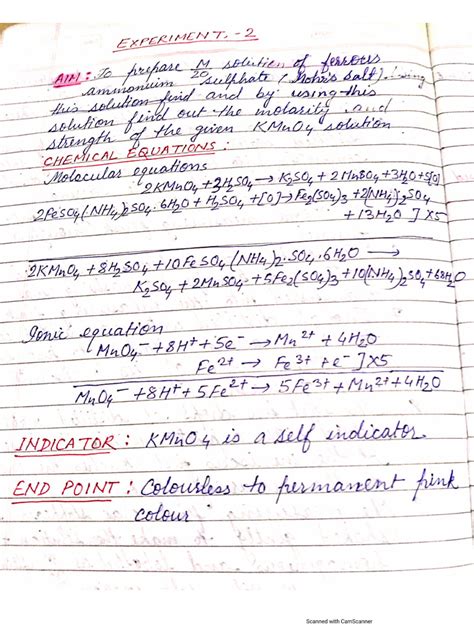 EXPERIMENT.-2
AIM: To prepare M/20 solution of ferrous
ammonium sulphate (Mohr's salt). Using
this solution find and by using this
solution find out the molarity and
strength of the given KMnO4 solution
CHEMICAL EQUATIONS:
Molecular equations
2KMnO4 + 3H2SO4 → K2SO4 + 2MnSO4 + 3H2O + 5[O]
2FeSO4(NH4)2SO4.6H2O + H2SO4 + [O] → Fe2(SO4)3 + 2(NH4)2SO4
+ 13H2O ] X5
2KMnO4 + 8H2SO4 + 10FeSO4(NH4)2.SO4.6H2O →
K2SO4 + 2MnSO4 + 5Fe2(SO4)3 + 10(NH4)2SO4 + 68H2O
Ionic equation
MnO4- + 8H+ + 5e- → Mn2+ + 4H2O
Fe2+ → Fe3+ + e- ] X5
MnO4- + 8H+ + 5Fe2+ → 5Fe3+ + Mn2+ + 4H2O
INDICATOR: KMnO4 is a self indicator
END POINT: Colourless to permanent pink
colour
Scanned with CamScanner